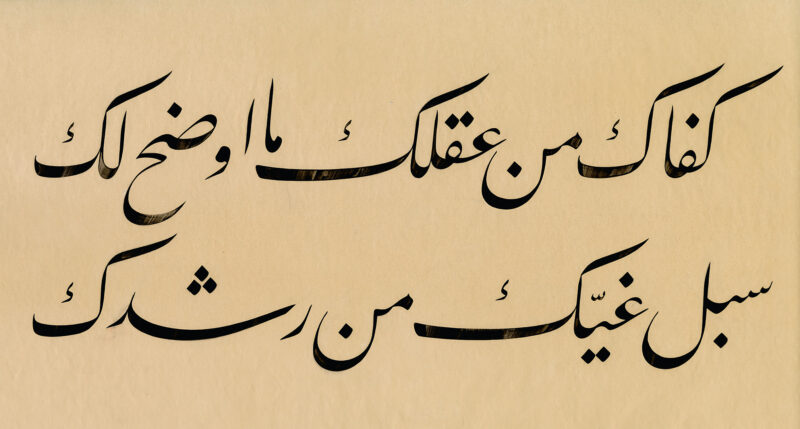 كفاك من عقلك ما اوضح لك
سبل غيّك من رشدك